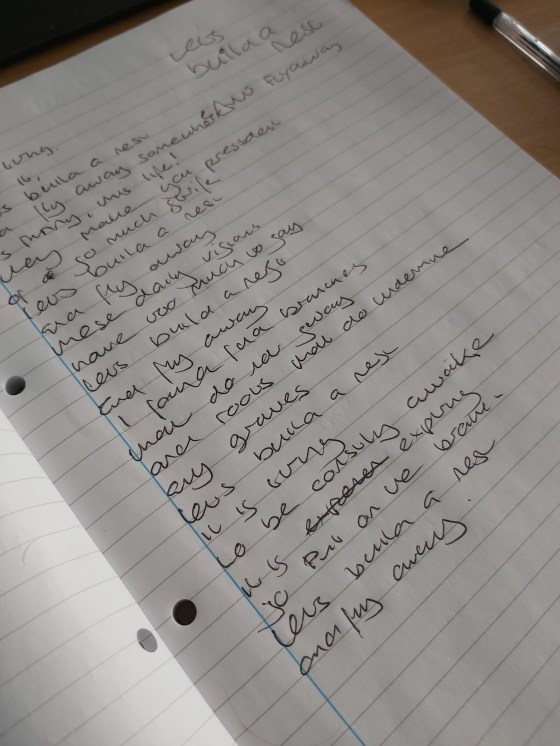 Lets
build a
nest
and
Fly away
living.
it,
build a nest
fly away somewhere
funny, this life!
They make you president
of so much strife
Lets build a nest
and fly away
These daily visions
have too much to say
Lets build a nest
and fly away
I found find branches
that do not sway
and roots that do undermine
any graves
Lets build a nest
it is tiring
to be constantly awake
it is expiring
to put on the brave.
Lets build a nest
and fly away.